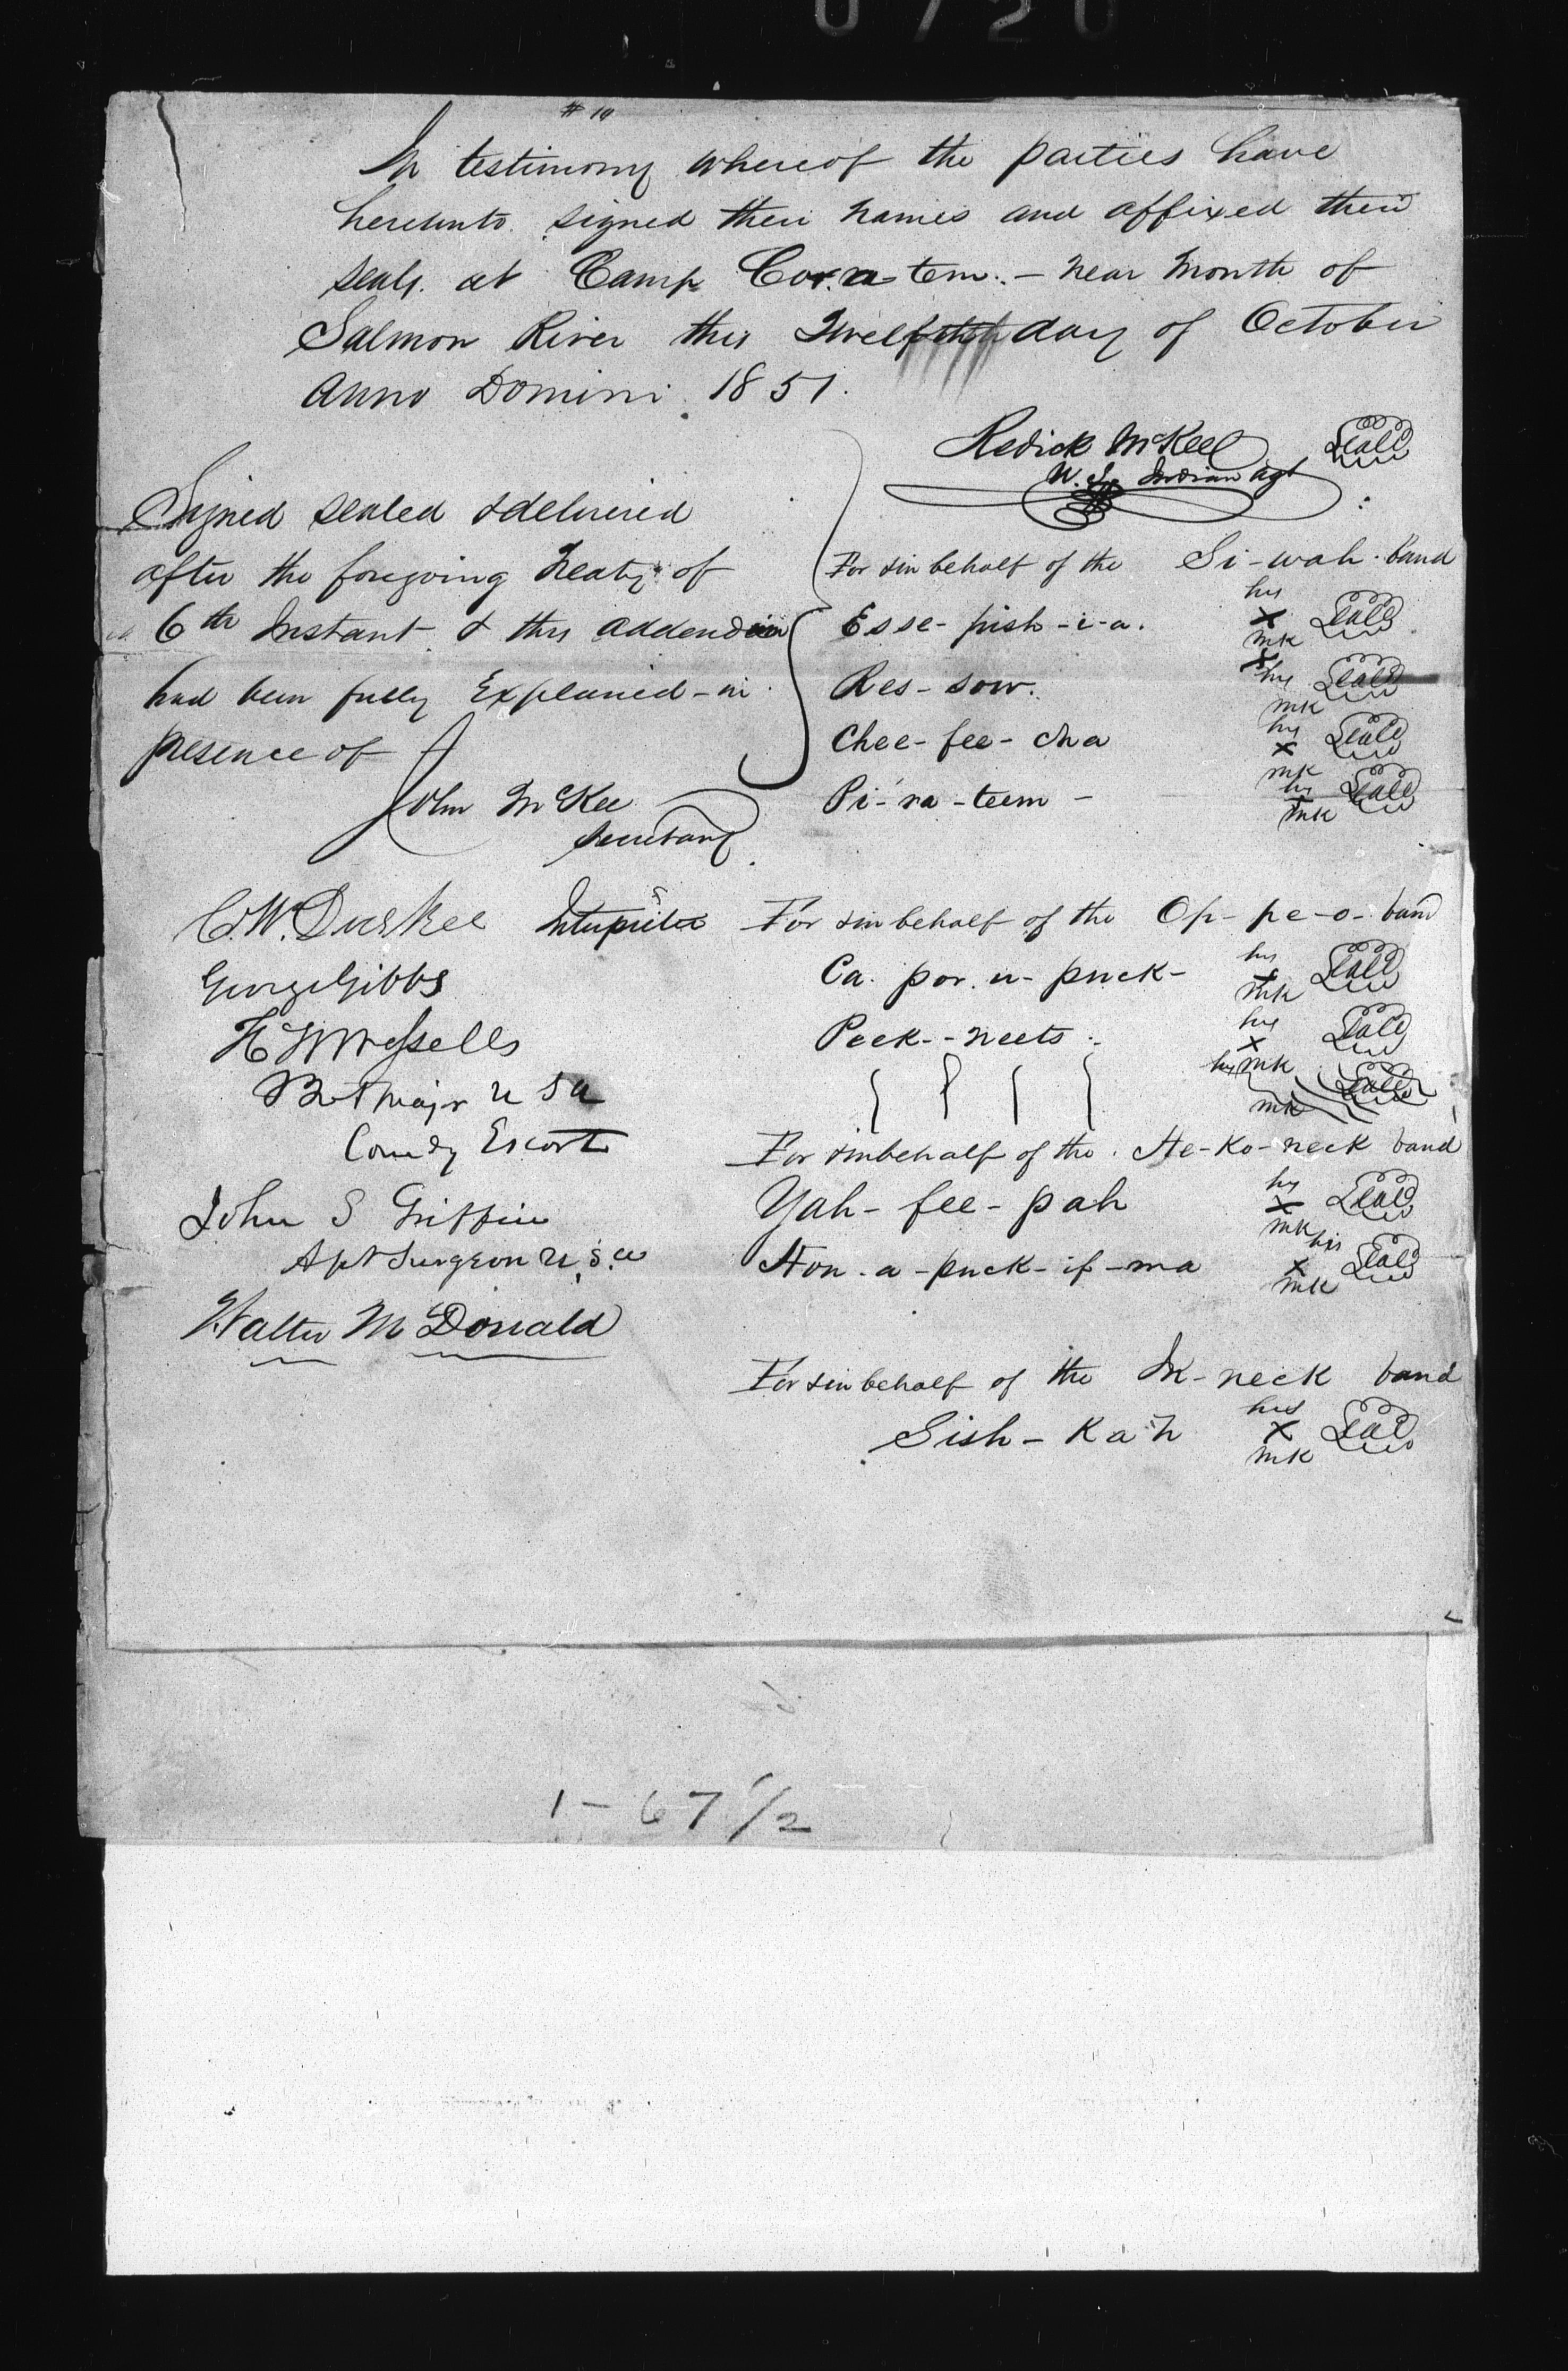 # 10
In testimony whereof the parties have
hereunto signed their names and affixed their
seals at Camp Cor-a-tem. - near mouth of
Salmon River this Twelfth day of October
Anno Domini 1851.
Redick McKee Seal
U. S. Indian Agt
Signed sealed & delivered
after the foregoing Treaty of
6th Instant & this addendum
had been fully Explained - in
presence of
John McKee
Secretary
C. W. Durkee Interpreter
George Gibbs
H W Wessells
Bvt Major U S A
Comdg Escort
John S Griffin
Asst Surgeon U.S.A
Walter McDonald
For & in behalf of the Si-wah-band
Esse-pish-i-a. his x mk Seal
Res-sow. his x mk Seal
Chee-fee-cha his x mk Seal
Pi-ra-teem - his x mk Seal
For & in behalf of the Op-pe-o-band
Ca-por-u-puck- his x mk Seal
Peek--neets - his x mk Seal
his mk Seal
For & in behalf of the He-ko-neck band
Yah-fee-pah his x mk Seal
Hon-a-puck-if-ma his x mk Seal
For & in behalf of the In-neck band
Sish-Kah his x mk Seal
1-67 1/2